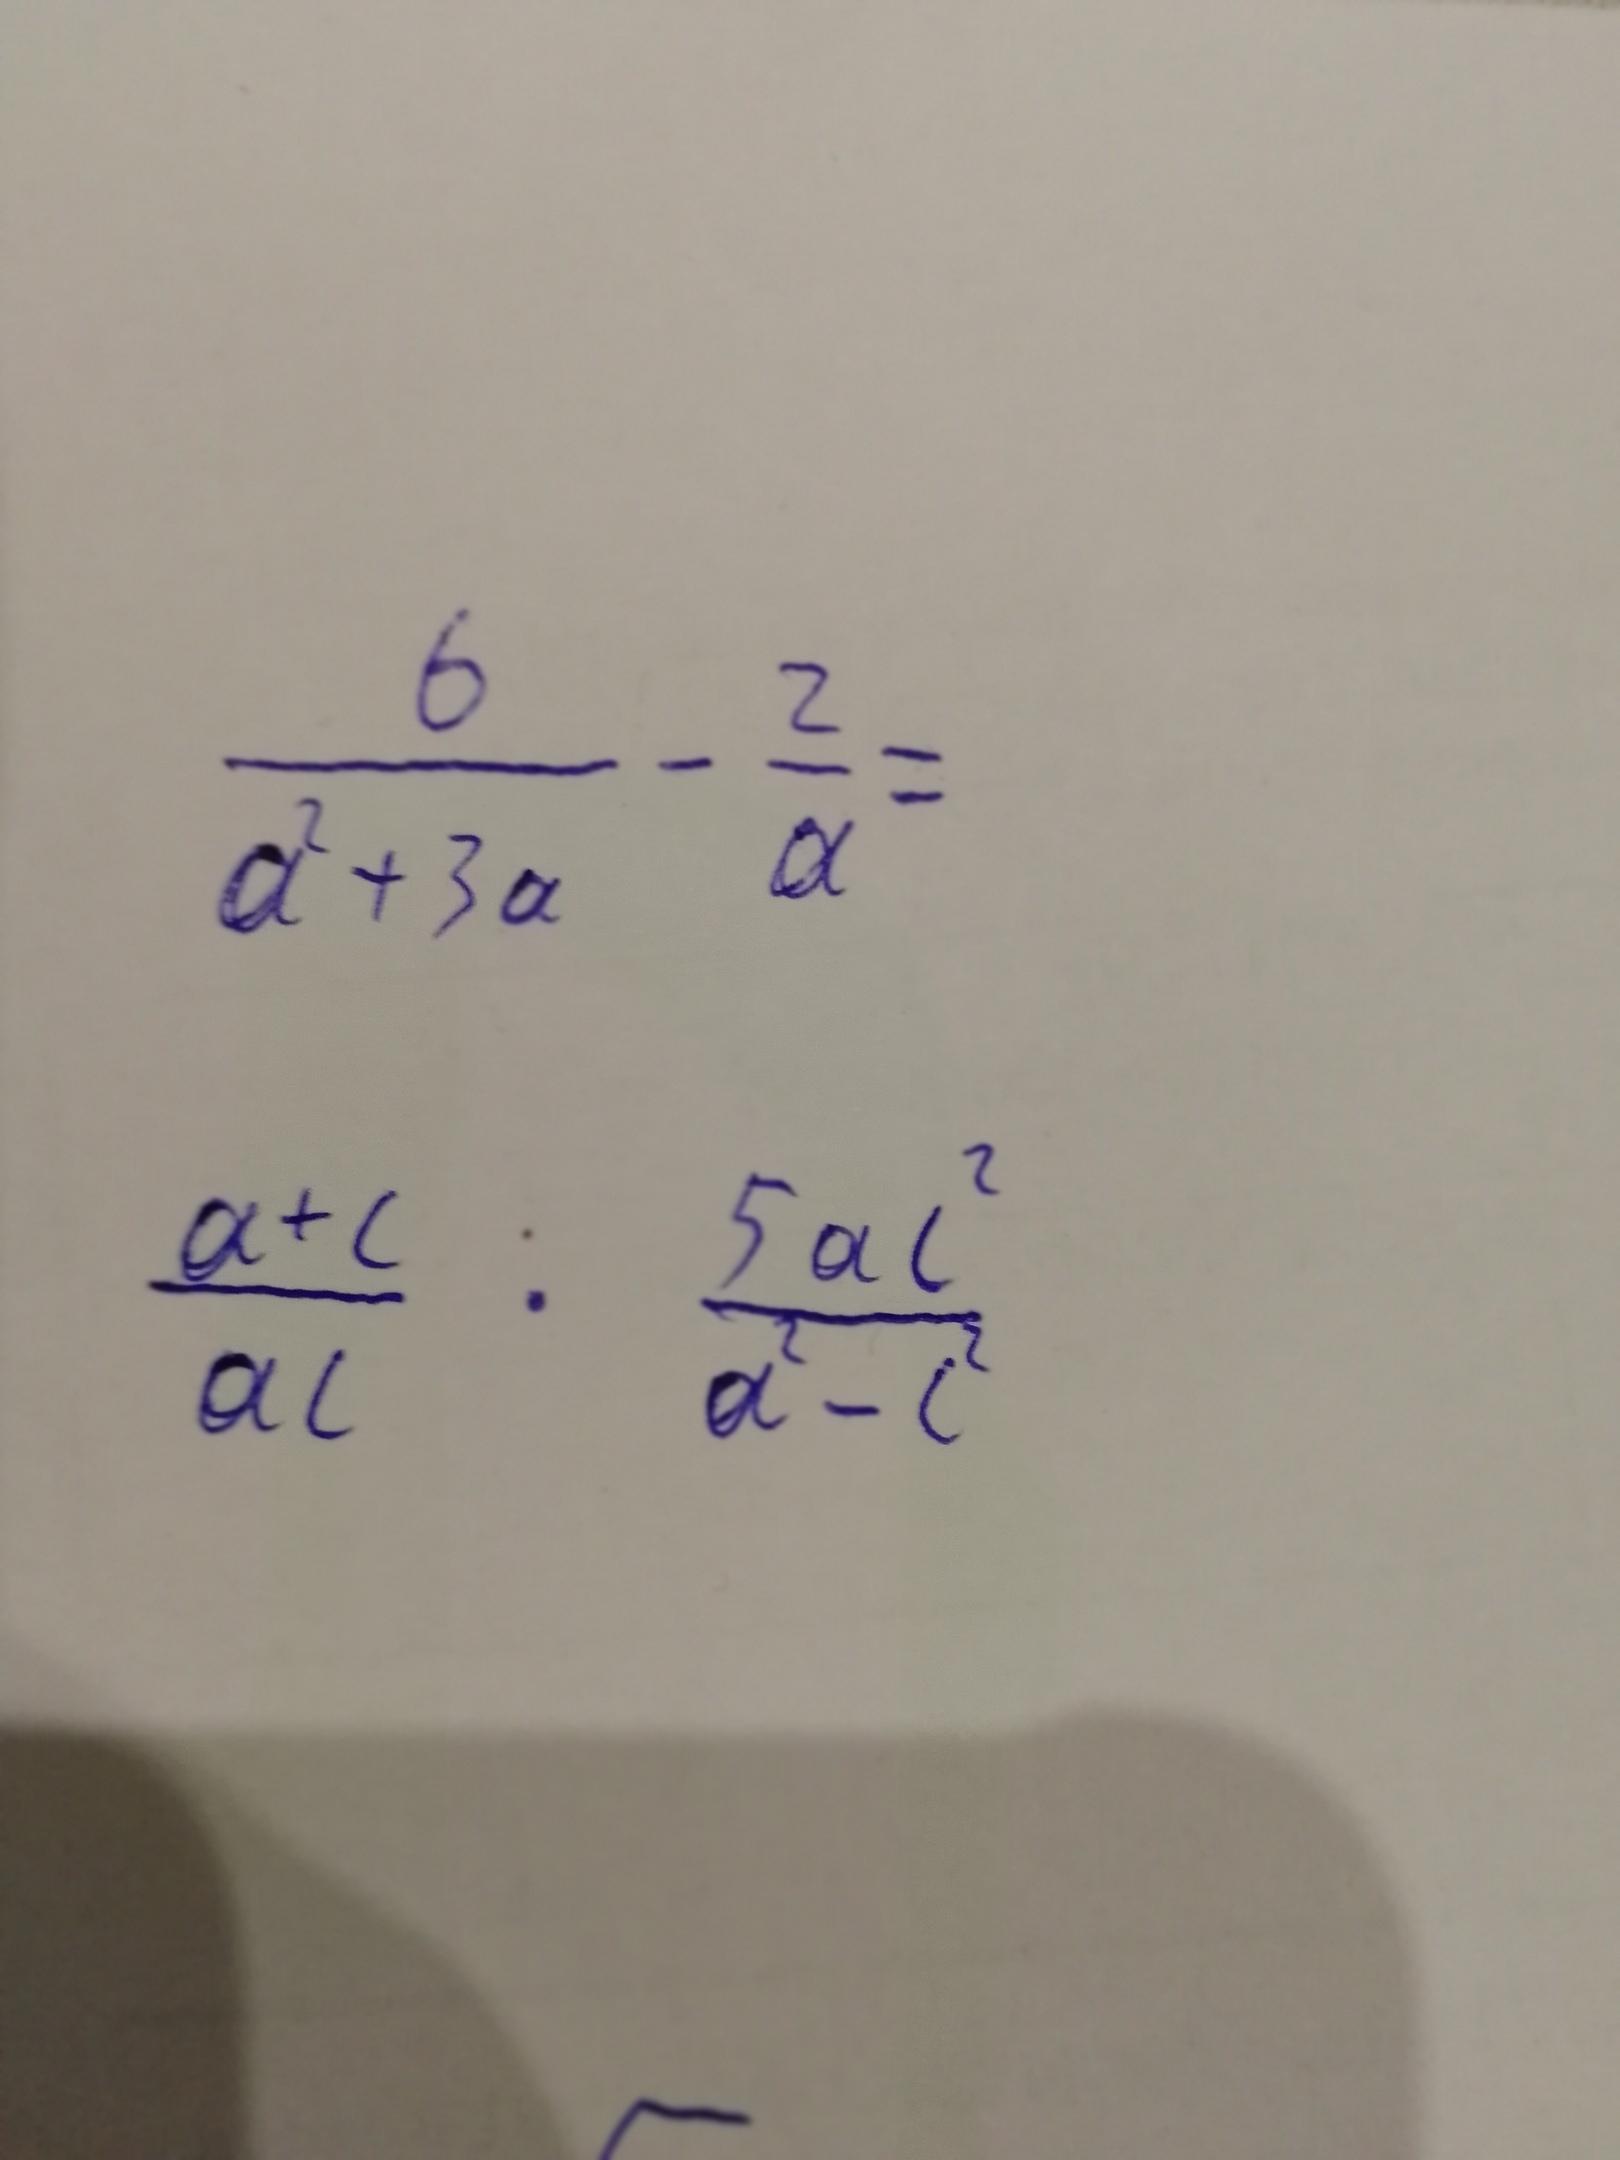 6/(a²+3a) - 2/a =
(a+c)/(ac) : (5ac²)/(a²-c²)